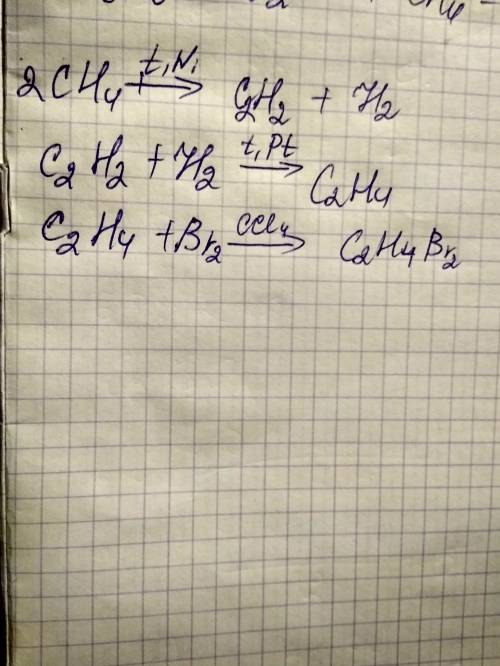 2CH₄ + t, Ni → C₂H₂ + H₂
C₂H₂ + H₂ t, Pt → C₂H₄
C₂H₄ + Br₂ CCl₄ → C₂H₄Br₂